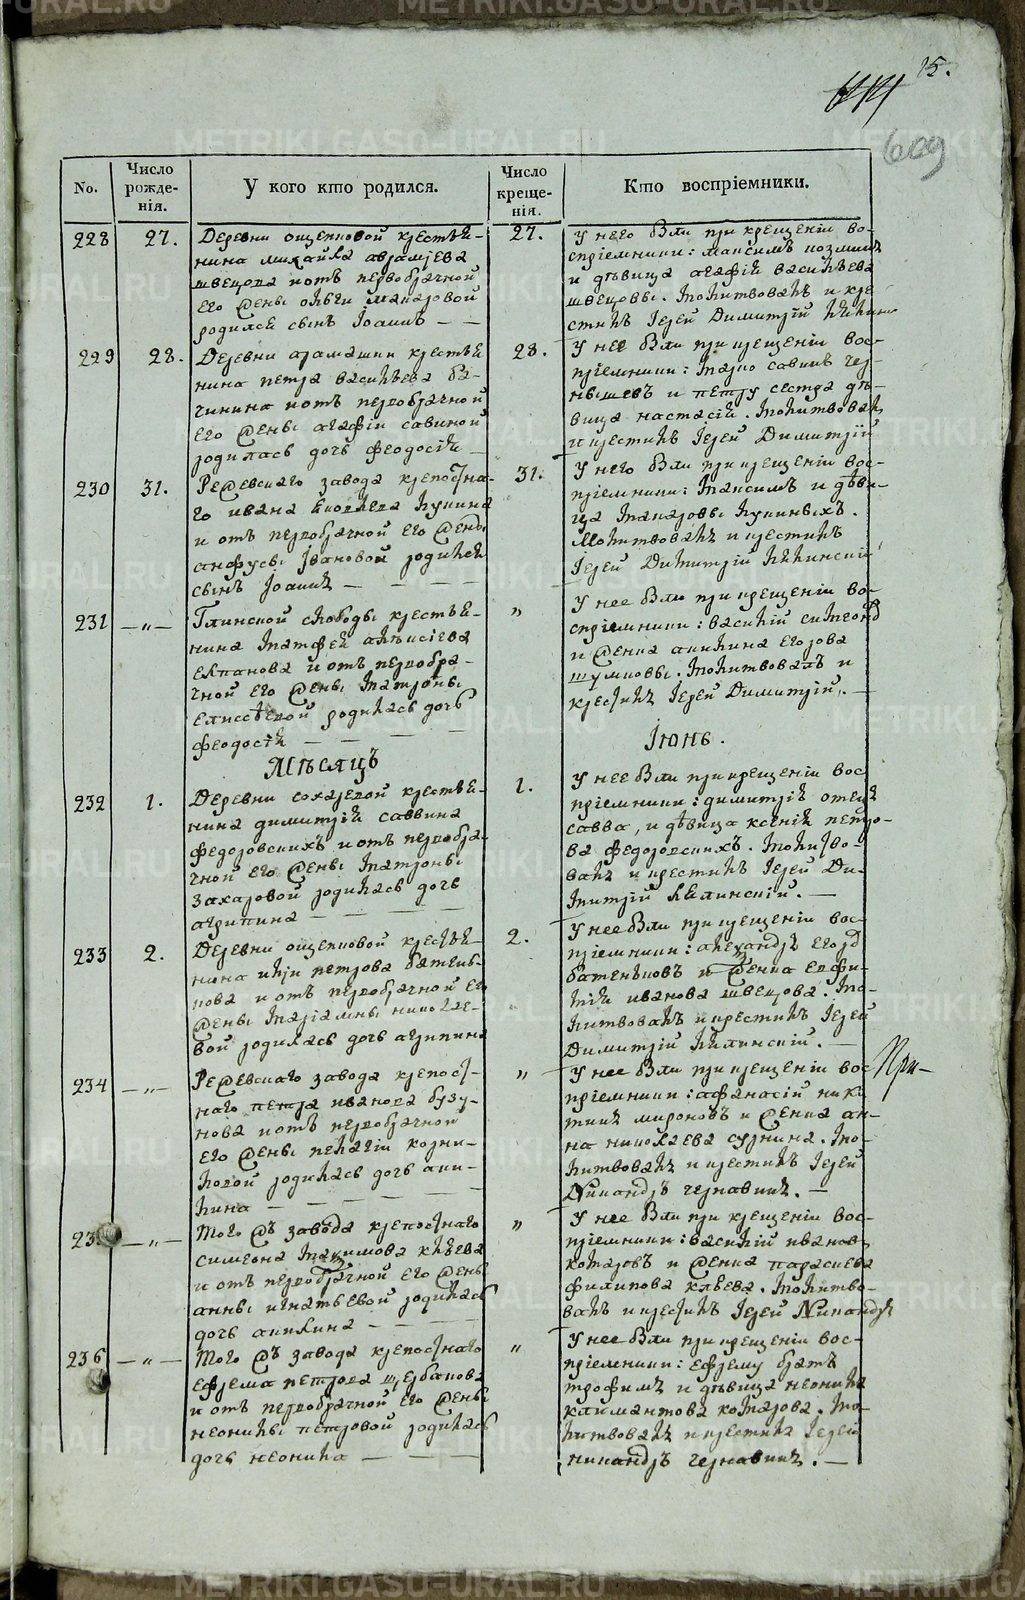 15.
609
No.
Число рожде-нія.
У кого кто родился.
Число креще-нія.
Кто воспріемники.
228
27.
Деревни ощепковой крестья-
нина михайла
швецова и отъ первобрачной
его жены ольги макаровой
родился сынъ Іоаннъ — —
27.
У него были при крещеніи во-
спріемники: максимъ козминъ
и дѣвица агафія васильева
швецовы. молитвовалъ и кре-
стилъ Іерей Димитрій
229
28.
Деревни арамашки крестья
нина петра васильева
и отъ первобрачной
его жены агафіи савиной
родилась дочь феодосія —
28.
У нее были при крещеніи вос-
пріемники: марко савинъ чер-
нышевъ и петру сестра дѣ-
вица настасія. молитвовалъ
и крестилъ Іерей Димитрій
230
31.
Режевскаго завода крепостна-
го ивана яковлева лукина
и отъ первобрачной его жены
анфусы Івановой родился
сынъ Іоаннъ — — — —
31.
У него были при крещеніи вос-
пріемники: максимъ и дѣви-
ца макаровы лукиныхъ.
молитвовалъ и крестилъ
Іерей Димитрій
231
— „ —
Глинской слободы крестья-
нина матфея алексіева
елпанова и отъ первобра-
чной его жены матроны
елисѣевой родилась дочь
феодосія — — — —
„
У нее были при крещеніи во-
спріемники: василій
и женка акилина егорова
шумковы. молитвовалъ и
крестилъ Іерей Димитрій. —
Мѣсяцъ
Іюнь.
232
1.
Деревни сохаревой крестья-
нина димитрія саввина
федоровскихъ и отъ первобра-
чной его жены матроны
захаровой родилась дочь
агрипина — — — —
1.
У нее были при крещеніи вос
пріемники: димитрія отецъ
савва, и дѣвица ксенія петро-
ва федоровскихъ. молитво-
валъ и крестилъ Іерей Ди-
митрій —
233
2.
Деревни ощепковой крестья
нина иліи петрова батень-
кова и отъ первобрачной его
жены маріамны николае-
вой родилась дочь агрипина
2.
У нее были при крещеніи вос-
пріемники: александръ
батеньковъ и женка евфи-
мія иванова швецова. мо-
литвовалъ и крестилъ Іерей
Димитрій —
234
— „ —
Режевскаго завода крепост-
наго петра иванова бузу-
нова и отъ первобрачной
его жены пелагіи корни-
ловой родилась дочь аки-
лина — — — —
„
У нее были при крещеніи вос
пріемники: афанасій ники
тинъ мироновъ и женка ан-
на николаева мо-
литвовалъ и крестилъ Іерей
Никандръ чернавинъ. —
При-
23
— „ —
Того жъ завода крепостнаго
симеона максимова клева
и отъ первобрачной его жены
анны игнатьевой родилась
дочь акилина — — — —
„
У нее были при крещеніи вос-
пріемники: василій иванов
комаровъ и женка параскева
филипова клева. молитво-
валъ и крестилъ Іерей Никандръ
236
— „ —
Того жъ завода крепостнаго
ефрема петрова щербакова
и отъ первобрачной его жены
неонилы петровой родилась
дочь неонила — — — —
„
У нее были при крещеніи вос-
пріемники: ефрему братъ
трофимъ и дѣвица неонила
климантова комарова. мо-
литвовалъ и крестилъ Іерей
никандръ чернавинъ. —
METRIKI.GASO-URAL.RU